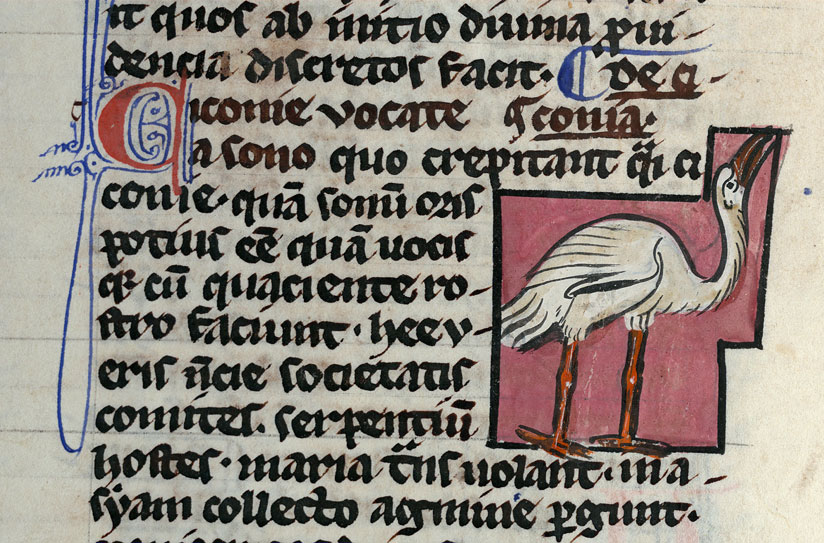 it quos ab initio diuina ꝓui-
dencia discretos facit. de ci-
Ciconie vocate conia.
a sono quo crepitant q̄i ci
conie. quā sonū oris
potius eē quā uocis
qꝛ cū quaciente ro-
stro faciunt. hee v-
eris n̄cie societatis
comites. serpentiū
hostes. maria t̄ns uolant. in a-
syam collecto agmine ꝑgunt.